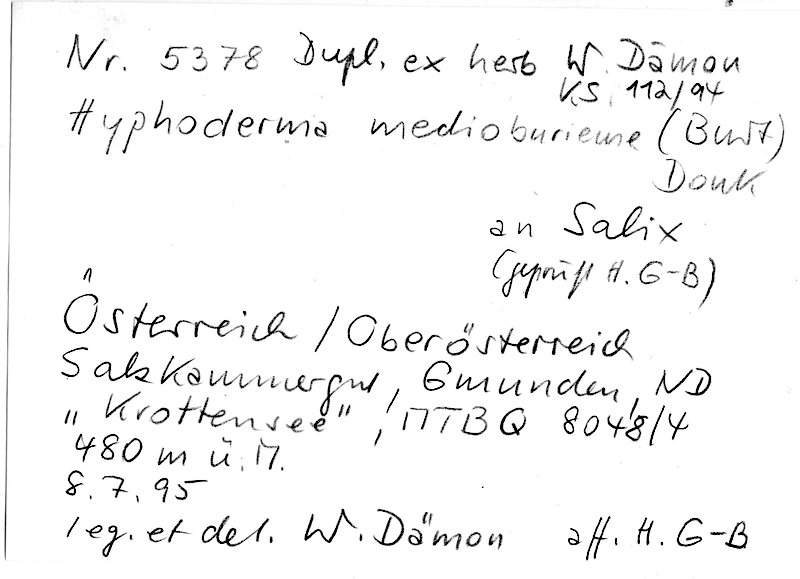 Nr. 5378 Dupl. ex herb W. Dämon
KS. 112/94
Hyphoderma medioburiense (Burt)
Donk
an Salix
(geprüft H. G-B)
Österreich / Oberösterreich
Salzkammergut, Gmunden, ND
„Krottensee", MTBQ 8048/4
480 m ü. M.
8.7.95
leg. et det. W. Dämon aff. H. G-B